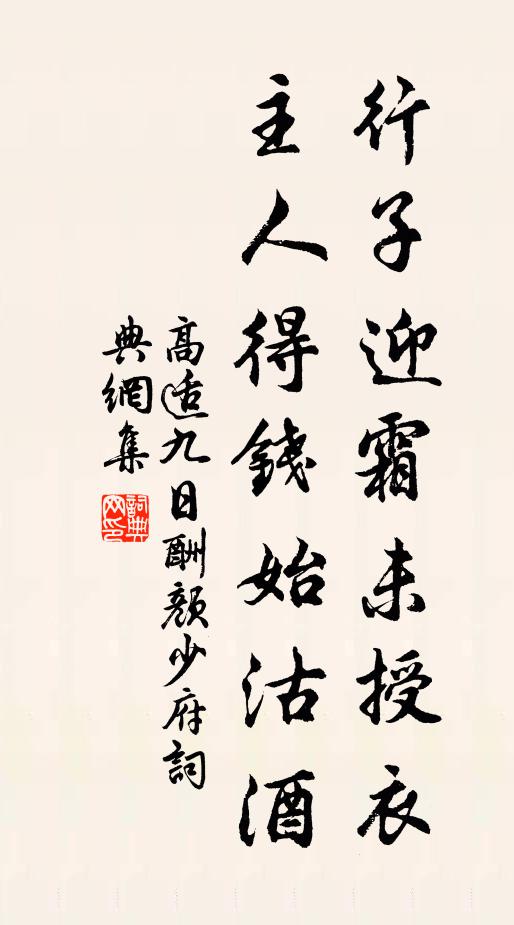 行子迎霜未授衣
主人得錢始沽酒
高适九日酬顏少府詞
典網集
詞典
网印